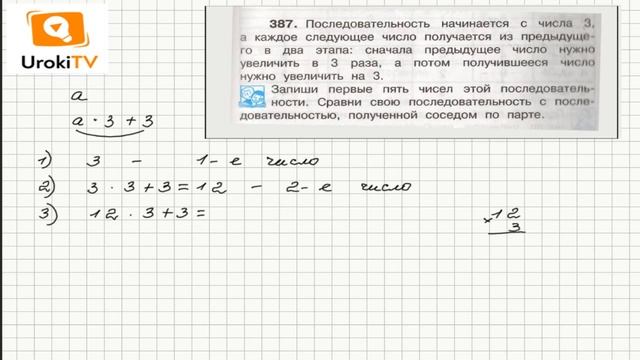 UrokiTV
387. Последовательность начинается с числа 3,
а каждое следующее число получается из предыдуще-
го в два этапа: сначала предыдущее число нужно
увеличить в 3 раза, а потом получившееся число
нужно увеличить на 3.
Запиши первые пять чисел этой последователь-
ности. Сравни свою последовательность с после-
довательностью, полученной соседом по парте.
а
а · 3 + 3
1) 3 - 1-е число
2) 3 · 3 + 3 = 12 - 2-е число
3) 12 · 3 + 3 =
× 12
3